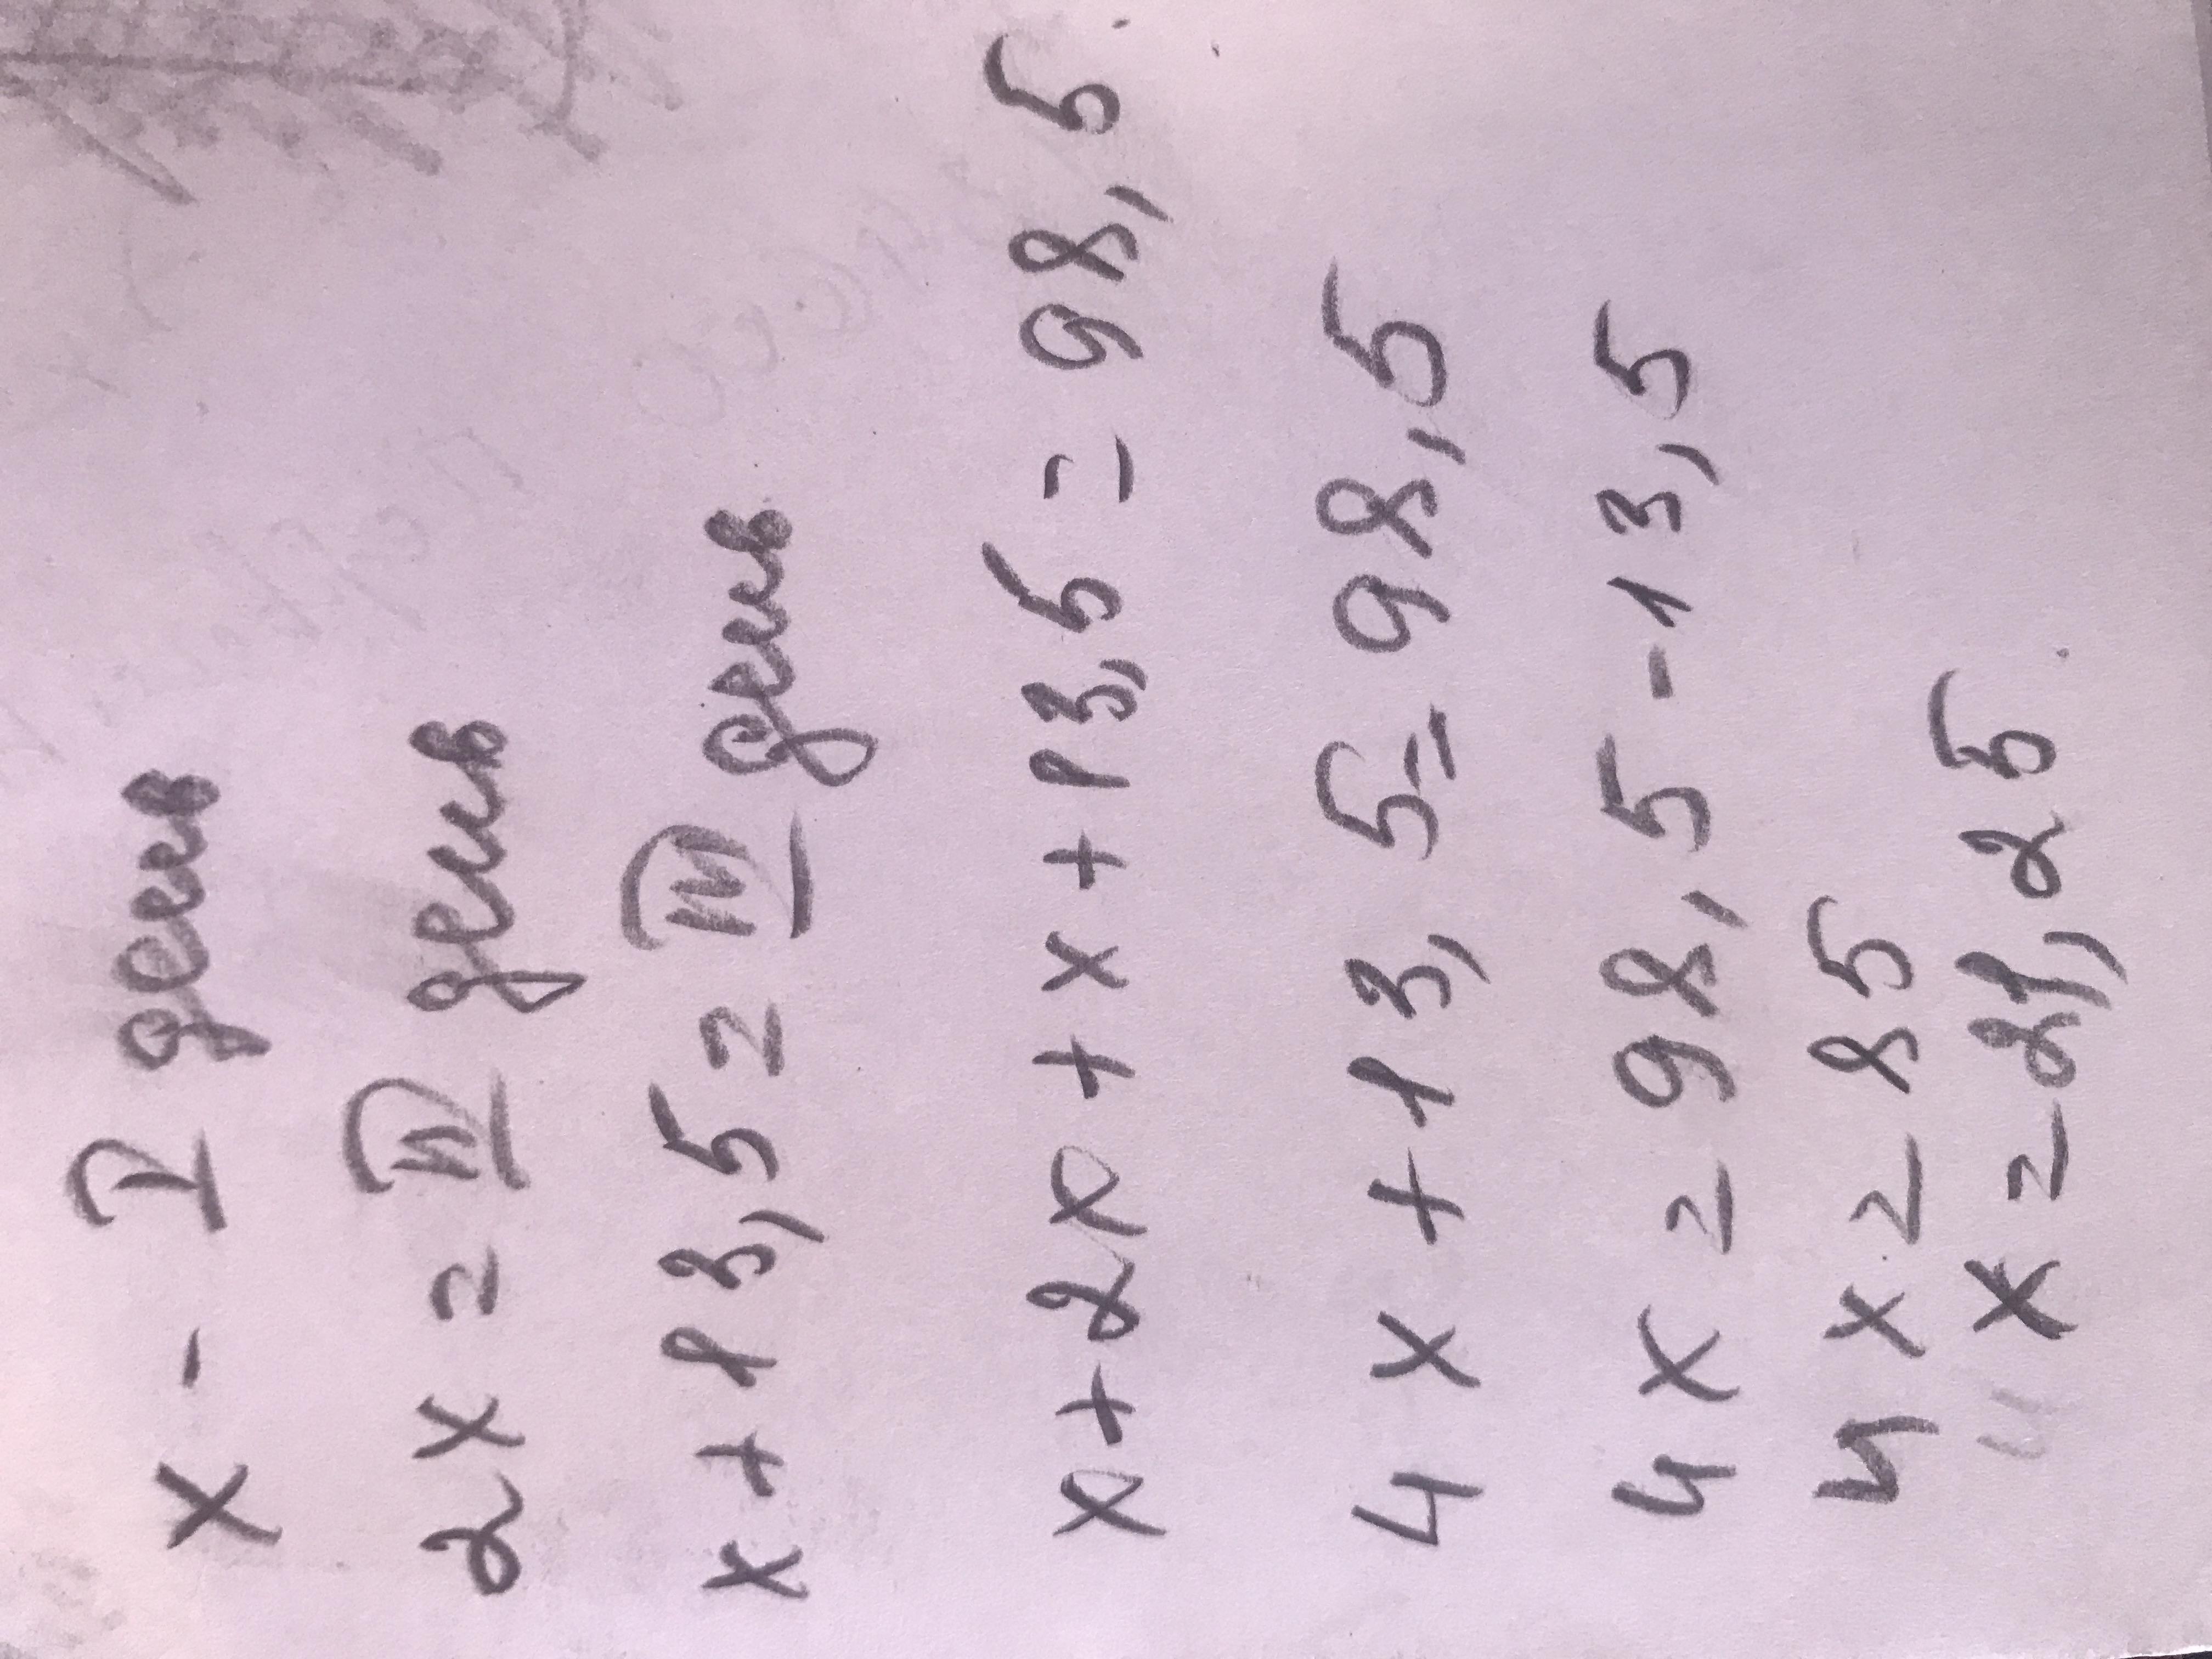 x - I день
2x = II день
x + 13,5 = III день
x + 2x + x + 13,5 = 98,5
4x + 13,5 = 98,5
4x = 98,5 - 13,5
4x = 85
x = 21,25.